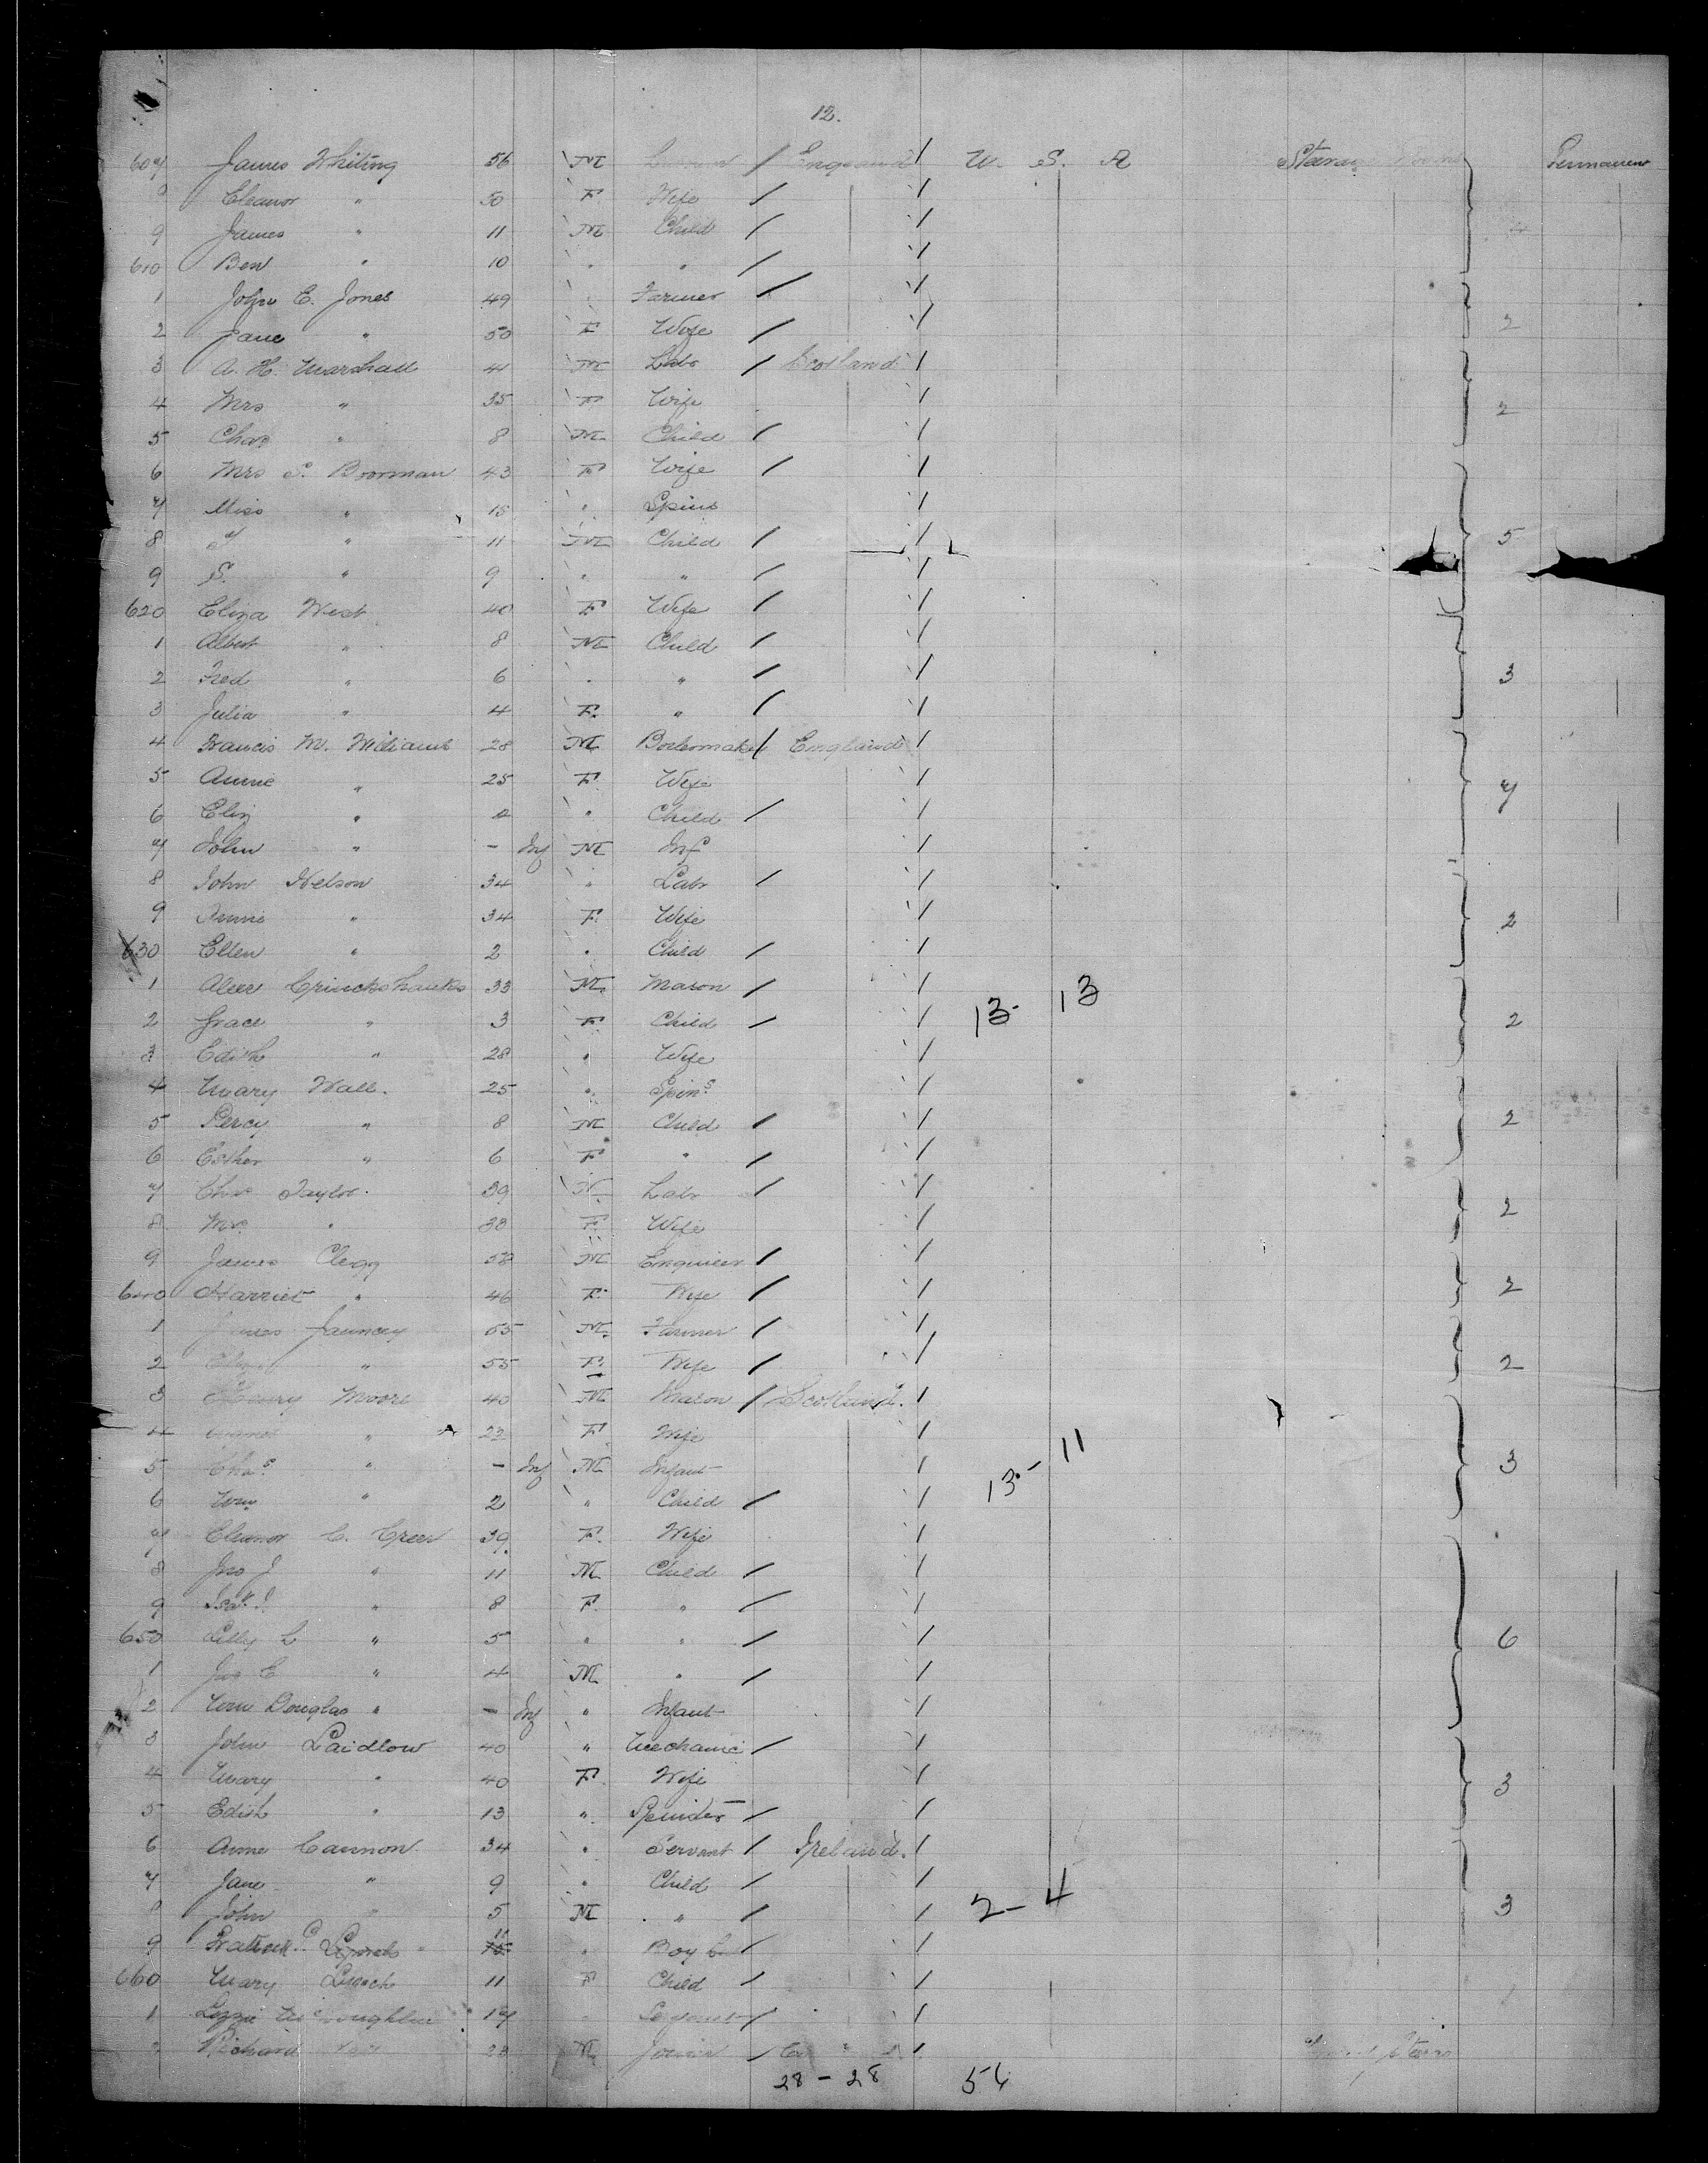 12.
607 James Whiting 56 M England U. S. A Permanent
8 Eleanor " 50 F Wife
9 James " 11 M Child 4
610 Ben " 10 " "
1 John E. Jones 49 " Farmer
2 Jane " 50 F Wife 2
3 A. H. Marshall 41 M Labr Scotland
4 Mrs " 35 F Wife 2
5 Chas " 8 M Child
6 Mrs S. Boorman 43 F Wife
7 Miss " 15 " Spins
8 " 11 M Child 5
9 S. " 9 " "
620 Eliza West 40 F Wife
1 Albert " 8 M Child
2 Fred " 6 " " 3
3 Julia " 4 F. "
4 Francis M. Williams 28 M Boilermaker England
5 Annie " 25 F Wife 4
6 Eliz " " Child
7 John " - Inf M Inf
8 John Nelson 34 " Labr
9 Annie " 34 F. Wife 2
630 Ellen " 2 " Child
1 Alexr Crinckshanks 33 M. Mason
2 Grace " 3 F Child 13- 13 2
3 Edith " 28 " Wife
4 Mary Wall. 25 " Spins
5 Percy " 8 M Child 2
6 Esther " 6 F "
7 Chas Taylor. 39 M Labr
8 Mrs " 38 F. Wife 2
9 James Clegg 58 M Engineer
640 Harriet " 46 F. Wife 2
1 James Jauncey 55 M. Farmer
2 " 55 F. Wife 2
3 Henry Moore 40 M Mason Scotland.
4 " 22 F Wife
5 Chas. " - Inf M Infant 13- 11 3
6 Wm " 2 " Child
7 Eleanor C. Creer 39. F. Wife
8 Jno J " 11 M Child
9 " 8 F. "
650 Lilly L " 5 " " 6
1 Jas C " 4 M "
2 Wm Douglas " - Inf " Infant
3 John Laidlow 40 " Mechanic
4 Mary " 40 F Wife 3
5 Edith " 13 " Spinster
6 Anne Cannon 34 " Servant Ireland.
7 Jane " 9 " Child
8 John " 5 M " 2- 4 3
9 Patrick Lynch 11 " Boy
660 Mary Lynch 11 F Child
1 Lizzie McLoughlin 17 "
2 Richard 28 M Joiner
28 - 28 54